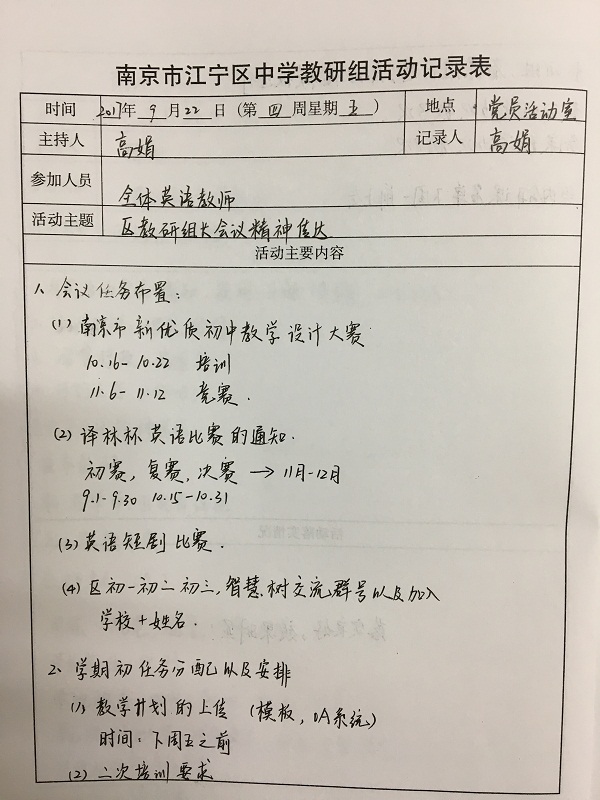 南京市江宁区中学教研组活动记录表
时间 2017年 9 月 22 日 (第 四 周星期 五 ) 地点 党员活动室
主持人 高娟 记录人 高娟
参加人员 全体英语教师
活动主题 区教研组长会议精神传达
活动主要内容
1、会议任务布置:
(1) 南京市新优质初中教学设计大赛
10.16- 10.22 培训
11.6- 11.12 竞赛.
(2) 译林杯英语比赛的通知.
初赛, 复赛, 决赛 → 11月-12月
9.1-9.30 10.15-10.31
(3) 英语短剧比赛.
(4) 区初一初二初三, 智慧树交流群号以及加入
学校+姓名.
2、学期初任务分配以及安排
(1) 教学计划的上传 (模板, OA系统)
时间: 下周五之前
(2) 二次培训要求